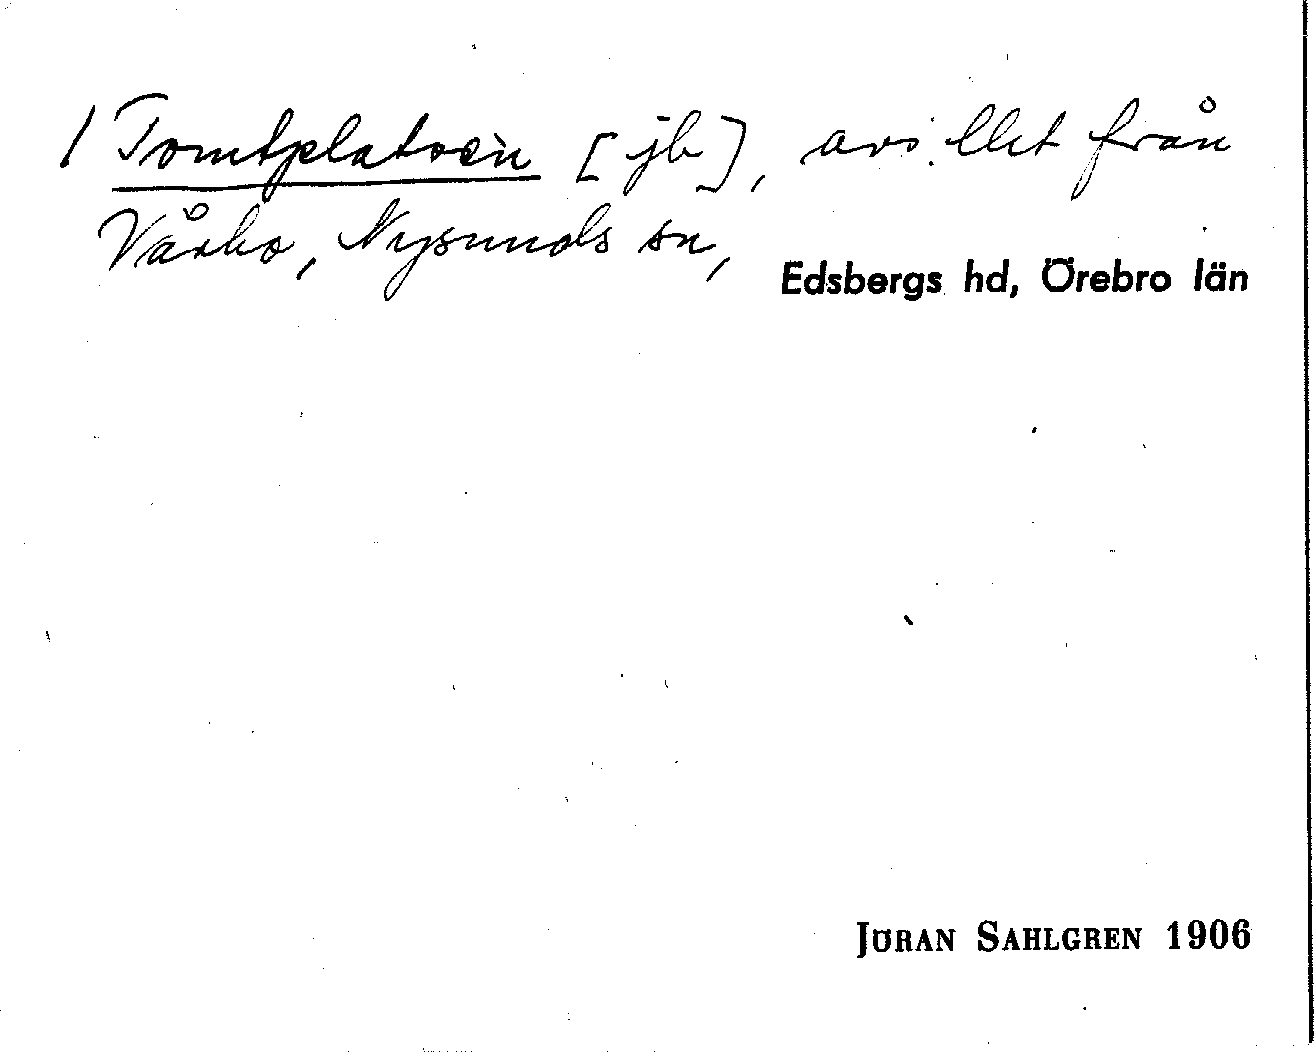 / Tomtplatsen [jb], avsillet från
Vårbo, Nysunds sn, Edsbergs hd, Örebro län
JÖRAN SAHLGREN 1906